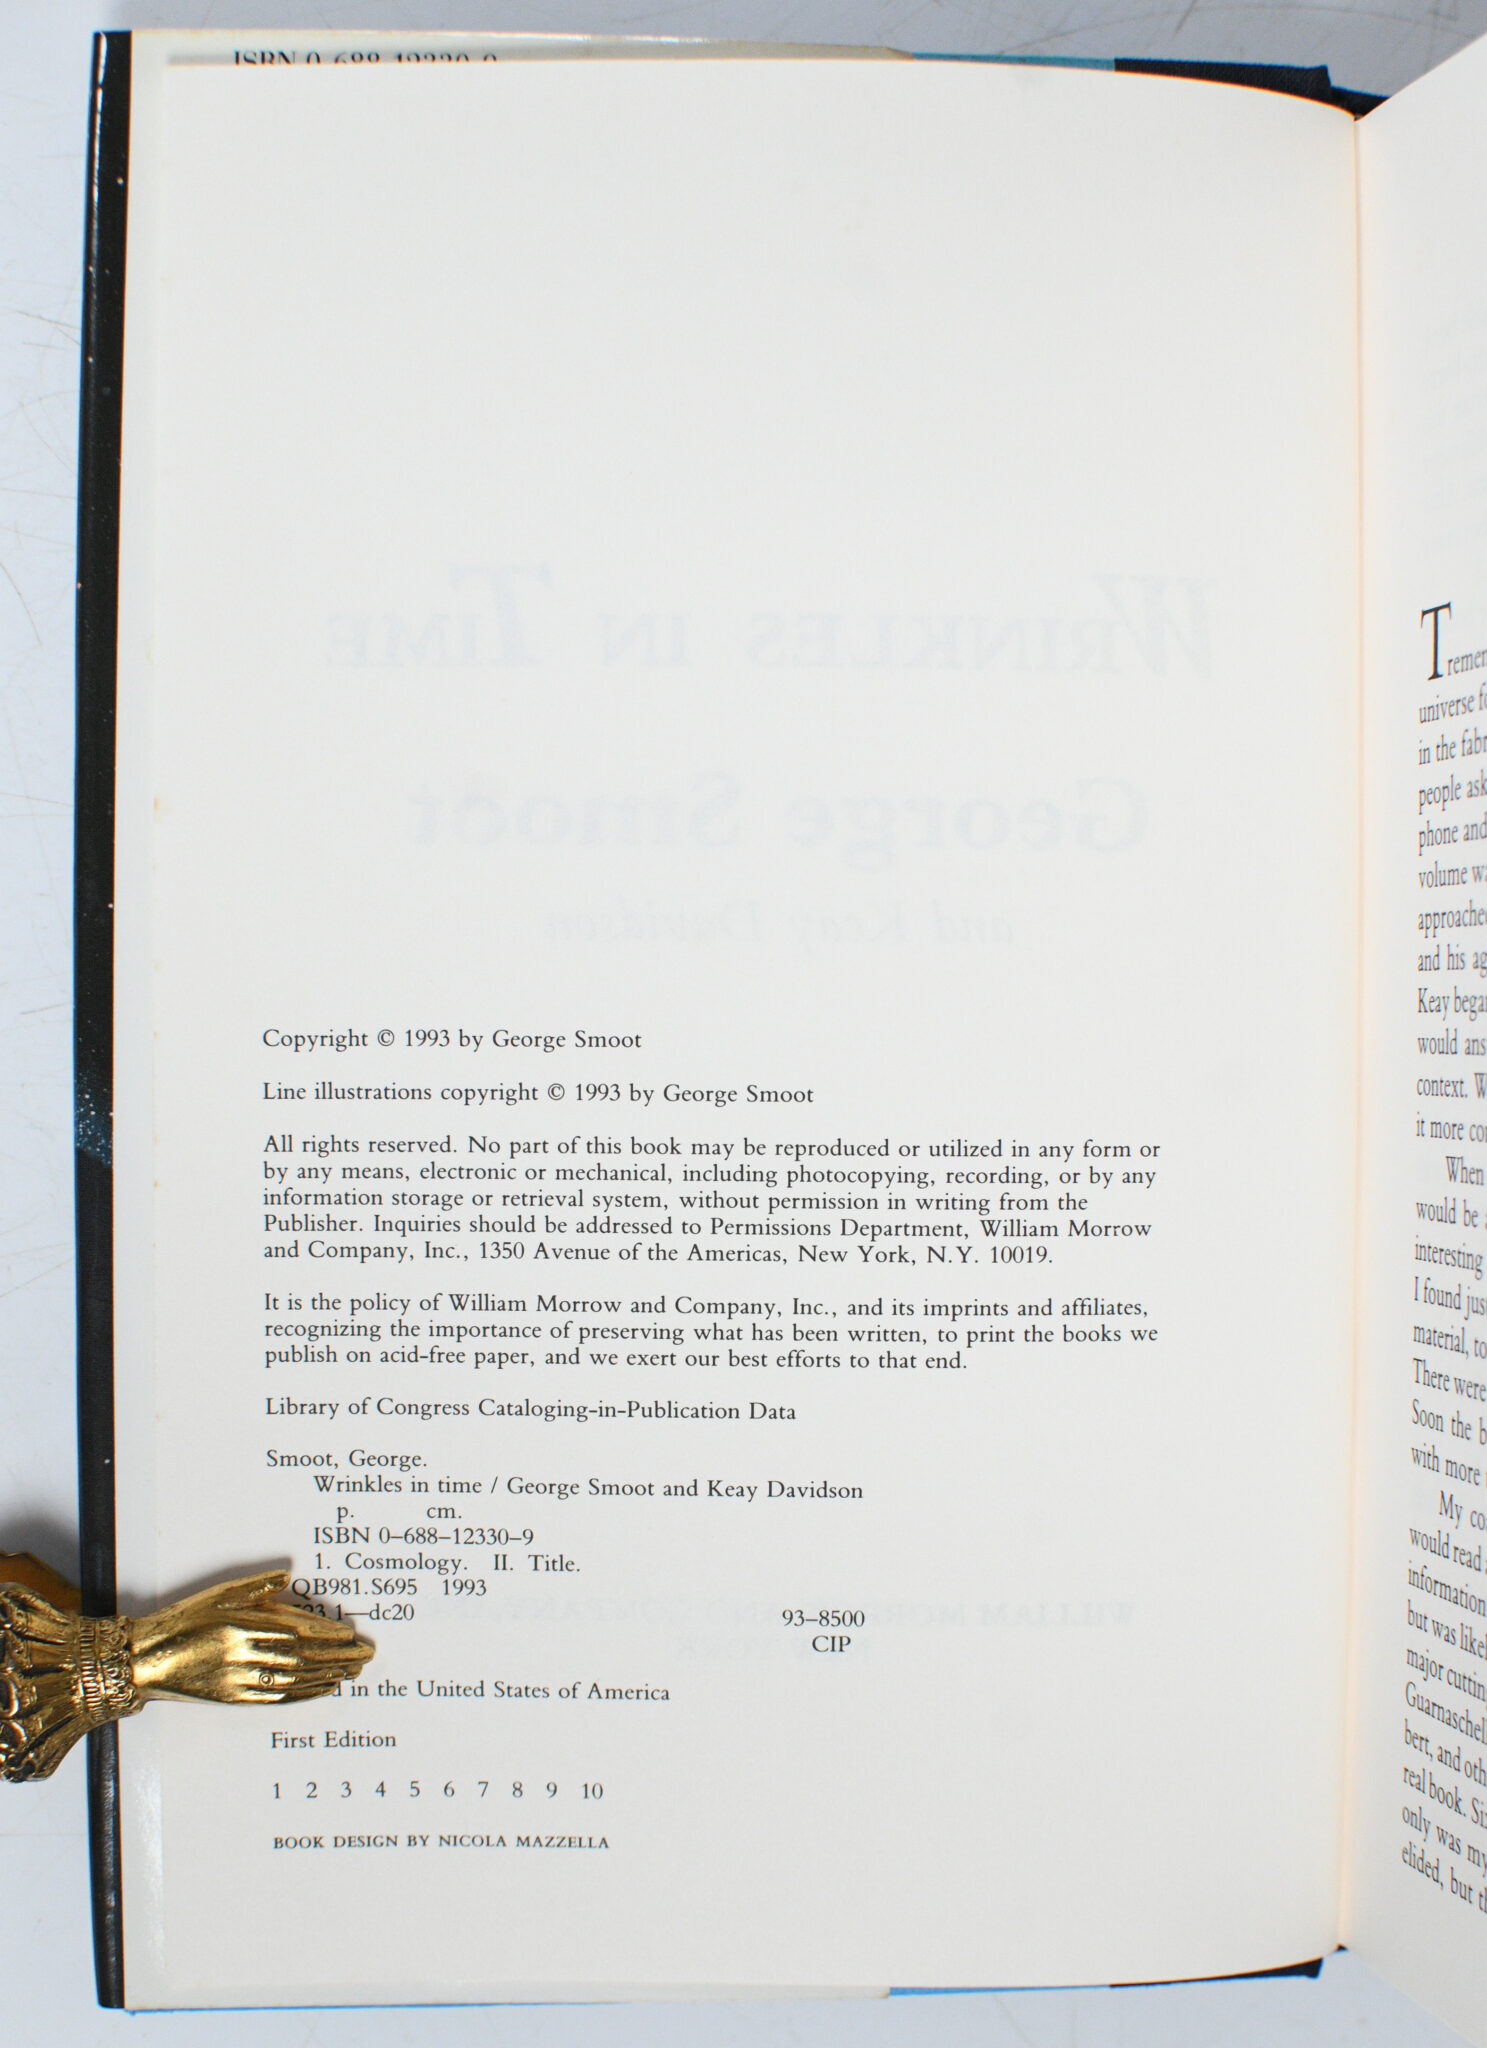 Copyright © 1993 by George Smoot
Line illustrations copyright © 1993 by George Smoot
All rights reserved. No part of this book may be reproduced or utilized in any form or
by any means, electronic or mechanical, including photocopying, recording, or by any
information storage or retrieval system, without permission in writing from the
Publisher. Inquiries should be addressed to Permissions Department, William Morrow
and Company, Inc., 1350 Avenue of the Americas, New York, N.Y. 10019.
It is the policy of William Morrow and Company, Inc., and its imprints and affiliates,
recognizing the importance of preserving what has been written, to print the books we
publish on acid-free paper, and we exert our best efforts to that end.
Library of Congress Cataloging-in-Publication Data
Smoot, George.
Wrinkles in time / George Smoot and Keay Davidson
p. cm.
ISBN 0–688–12330–9
1. Cosmology. II. Title.
QB981.S695 1993
—dc20 93–8500
CIP
in the United States of America
First Edition
1 2 3 4 5 6 7 8 9 10
BOOK DESIGN BY NICOLA MAZZELLA
universe
in the
people
phone and
volume
approached
and his
Keay began
would
context.
it more
When
would be
interesting
I found
material, to
There were
Soon the
with more
My
would read
information
but was
major
bert, and
real book.
only was my
elided, but